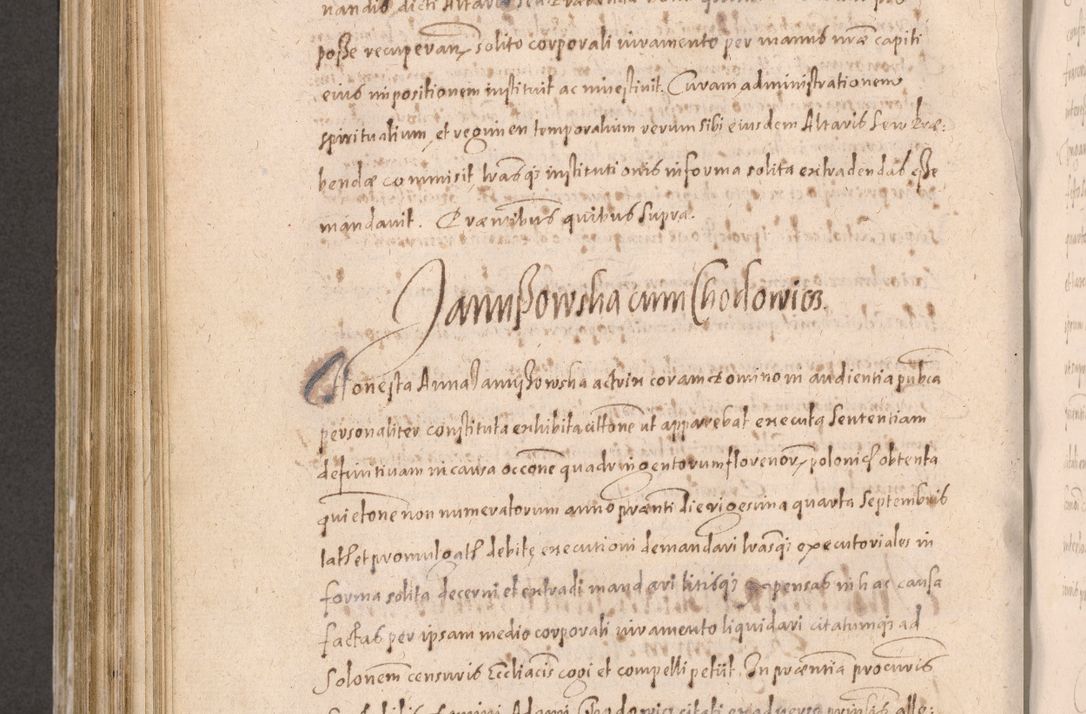 nandis dicti Altaris seu Præbendæ
posse recuperan, solito corporali iuramento per manus nræ capiti
eius impositionem instituit ac inuestiuit. Curam administrationem
spiritualium, et regimen temporalium rerum sibi eiusdem Altaris seu Præ:
bendæ commisit, lrasq; institutionis in forma solita extradendas esse
mandauit. Præntibus quibus supra.
Janussowska cum Chodowicz.
Honesta Anna Janussowska actrix coram domino in audientia publca
personaliter constituta exhibita cittone ut apparebat executa Sententiam
definitiuam in causa occone quadringentorum florenor, polonicl obtenta
quietone non numeratorum anno prænti die vigesima quarta Septembris
latł et promulgatł debitę executioni demandari lrasq; executoriales in
forma solita decerni et extradi mandari litisq; expensas in hac causa
factas per ipsam medio corporali iuramento liquidari citatumq; ad
Solonem censuris EcclIacis cogi et compelli petiit. In præntia procuris
Adami Chodowicz citati ex aduerso principalis alle: